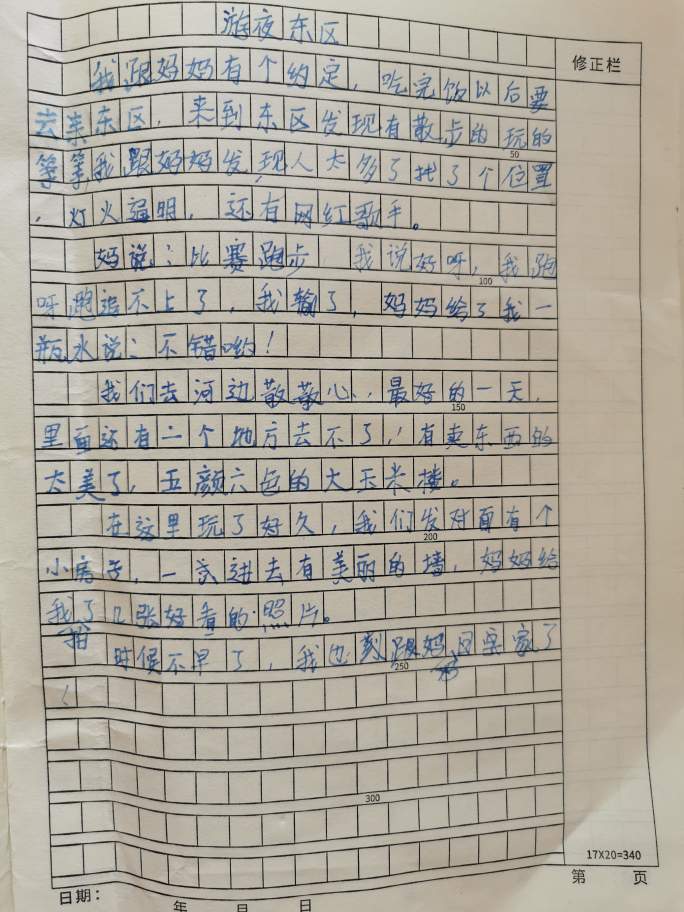 游夜东区
修正栏
我跟妈妈有个约定，吃完饭以后要
去东区，来到东区发现有散步的玩的
50
等等,我跟妈妈发现人太多了找了个位置
，灯火通明，还有网红歌手。
妈说：比赛跑步 我说好呀，我跑
100
呀跑追不上了，我输了，妈妈给了我一
瓶水说：不错哟！
我们去河边散散心，最好的一天，
150
里面还有一个地方去不了，有卖东西的
太美了，五颜六色的大玉米楼。
在这里玩了好久，我们发对面有个
200
小房子，一进去有美丽的墙，妈妈给
我拍了几张好看的照片。
时候不早了，我也刻跟妈回家了
250
300
17X20=340
第 页
日期： 年 月 日